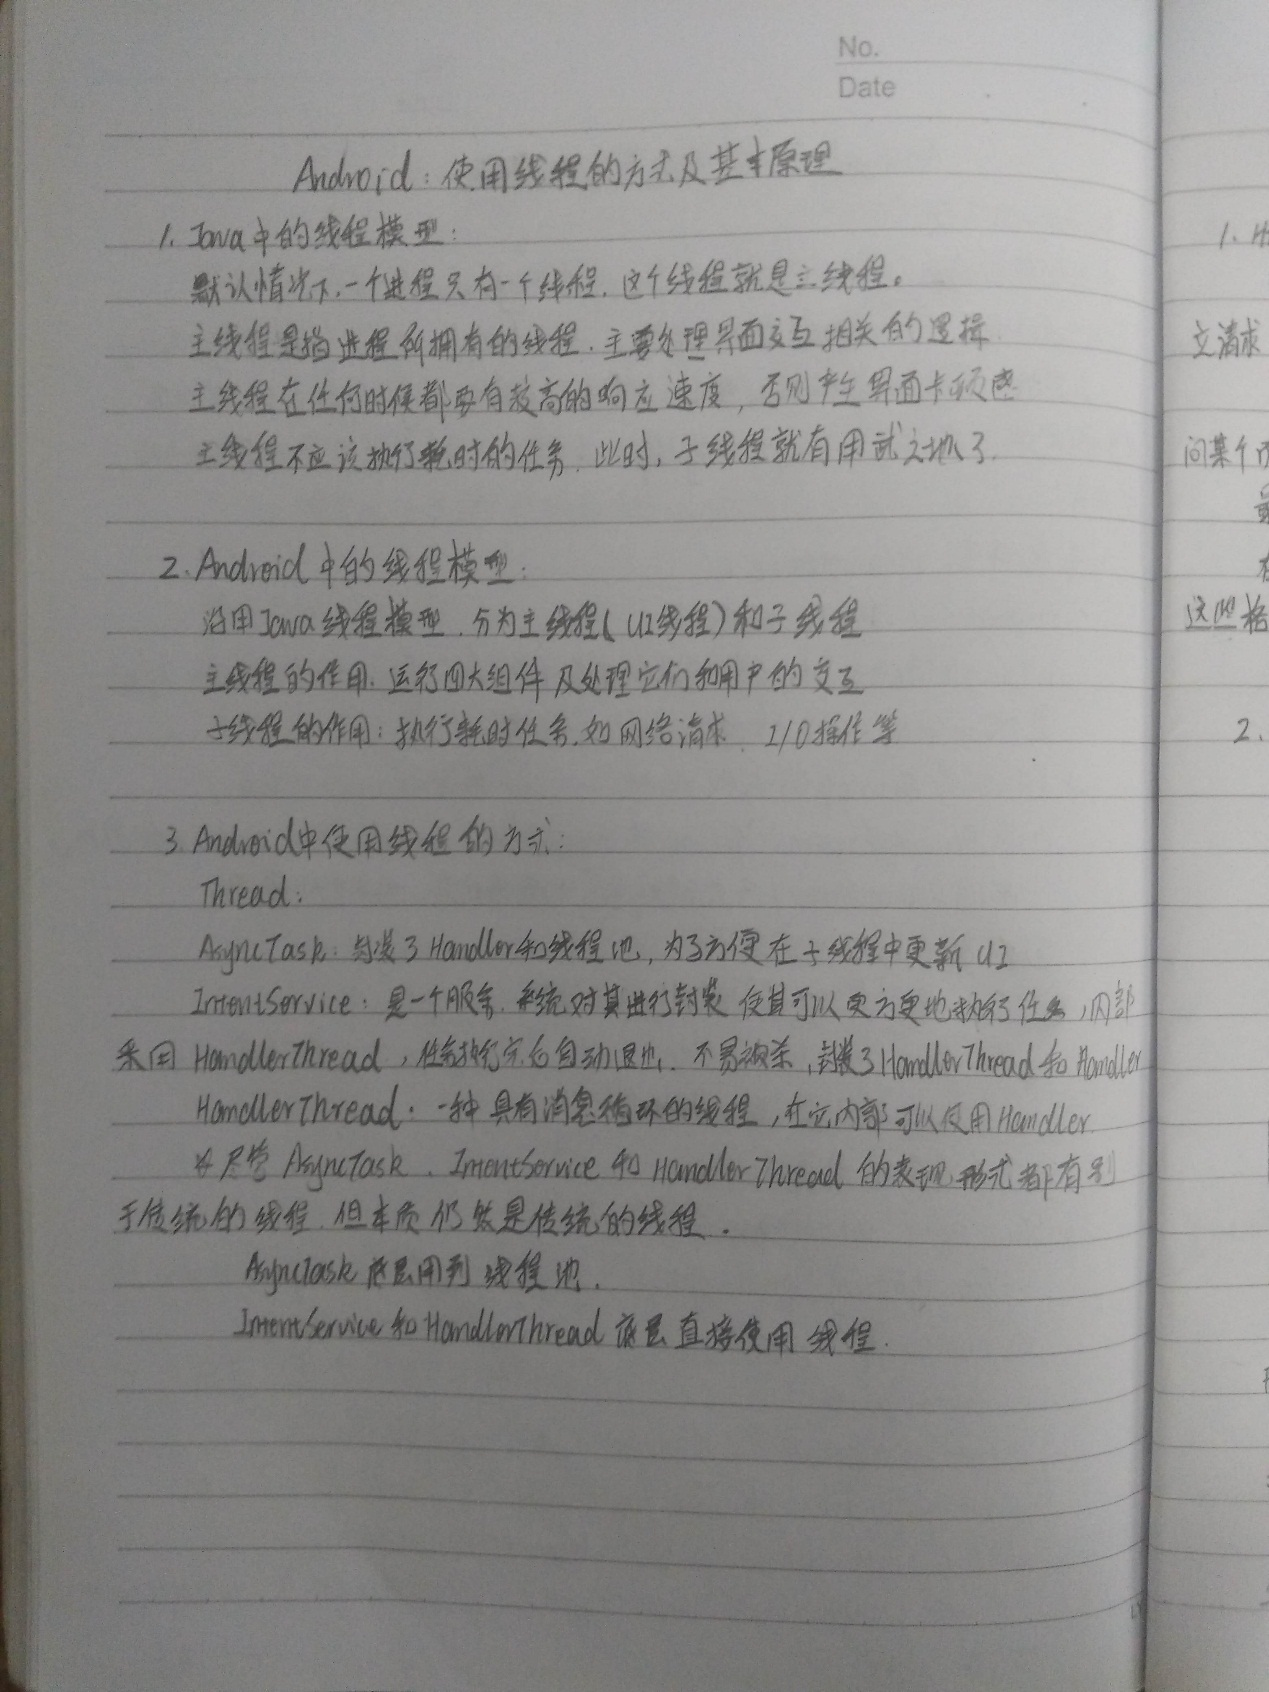 No.
Date
Android：使用线程的方式及基本原理
1. Java中的线程模型：
默认情况下，一个进程只有一个线程，这个线程就是主线程。
主线程是指进程所拥有的线程，主要处理界面交互相关的逻辑
主线程在任何时候都要有较高的响应速度，否则产生界面卡顿感
主线程不应该执行耗时的任务，此时，子线程就有用武之地了.
2. Android中的线程模型：
沿用Java线程模型，分为主线程(UI线程)和子线程
主线程的作用：运行四大组件及处理它们和用户的交互
子线程的作用：执行耗时任务，如网络请求、I/O操作等
3 Android中使用线程的方式：
Thread：
AsyncTask：封装了Handler和线程池，为了方便在子线程中更新UI
IntentService：是一个服务，系统对其进行封装 使其可以更方便地执行任务，内部
采用 HandlerThread，任务执行完后自动退出，不易被杀，封装了HandlerThread和Handler
HandlerThread：一种具有消息循环的线程，在它内部可以使用Handler.
尽管 AsyncTask、IntentService 和 HandlerThread 的表现形式都有别
于传统的线程，但本质仍然是传统的线程.
AsyncTask底层用到线程池.
IntentService和HandlerThread底层直接使用线程.
1.
交请求
问某个
这些格
2.